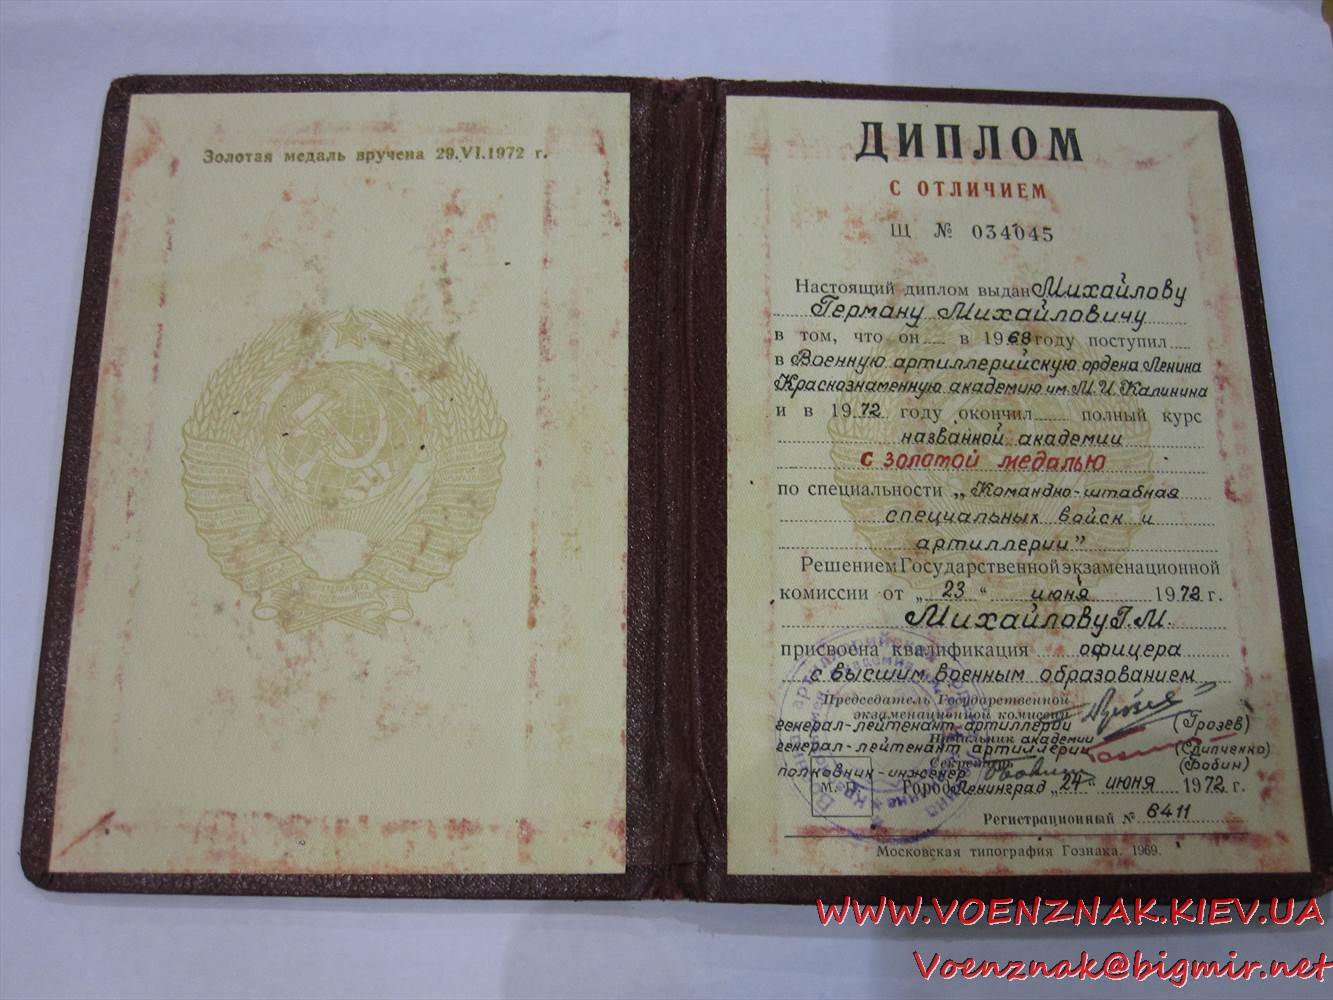 Золотая медаль вручена 29.VI.1972 г.
ДИПЛОМ
С ОТЛИЧИЕМ
Щ № 034045
Настоящий диплом выдан Михайлову
Герману Михайловичу
в том, что он в 1968 году поступил
в Военную артиллерийскую ордена Ленина
Краснознаменную академию им. М. И. Калинина
и в 1972 году окончил полный курс
названной академии
с золотой медалью
по специальности „Командно-штабная
специальных войск и
артиллерии"
Решением Государственной экзаменационной
комиссии от „23" июня 1972 г.
Михайлову Г. М.
присвоена квалификация офицера
с высшим военным образованием
Председатель Государственной
экзаменационной комиссии
генерал-лейтенант артиллерии (Грозев)
Начальник академии
генерал-лейтенант артиллерии (Слипченко)
Секретарь
полковник-инженер (Бобин)
М. П. Город Ленинград „24" июня 1972 г.
Регистрационный № 6411
Московская типография Гознака. 1969.
WWW.VOENZNAK.KIEV.UA
Voenznak@bigmir.net